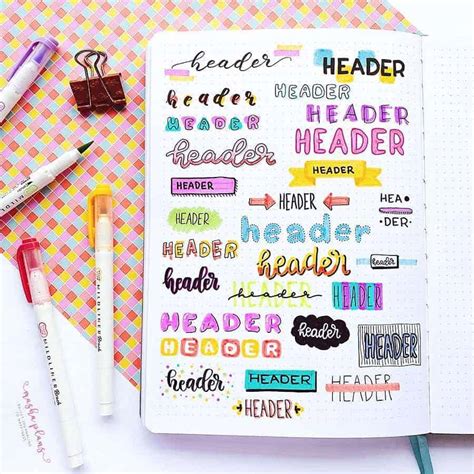 header
HEADER
header
HEADER
HEADER
HEADER
HEADER
header
HEADER
HEADER
HEADER
HEADER
HEA
·DER·
header
header
HEADER
header
header
header
HEADER
header
HEADER
HEADER
HEADER
header
HEADER
header
HEADER
HEADER
HEADER
MILDLINER Brush
MILDLINER Brush
MILDLINER
nashaplans